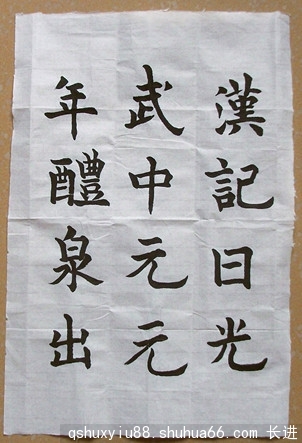 漢記曰光
武中元元
年醴泉出
qshuxyiu88.shuhua66.com 长进